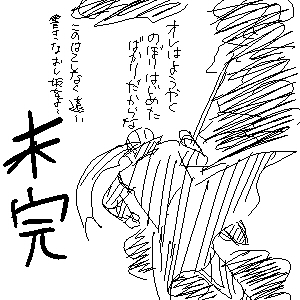 オレはようやく
のぼりはじめた
ばかりだからな
このはてしなく遠い
男坂をよ…
未完